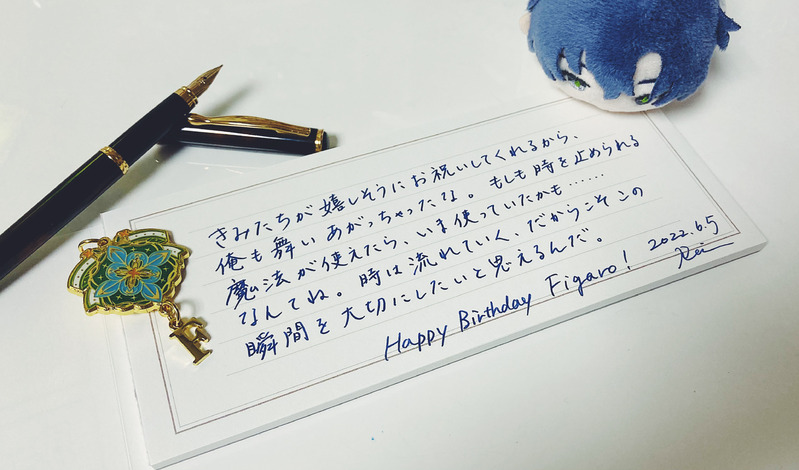 きみたちが嬉しそうにお祝いしてくれるから、
俺も舞いあがっちゃったな。もしも時を止められる
魔法が使えたら、いま使っていたかも……
なんてね。時は流れていく、だからこそこの
瞬間を大切にしたいと思えるんだ。
Happy Birthday Figaro! 2022.6.5
Rei
F